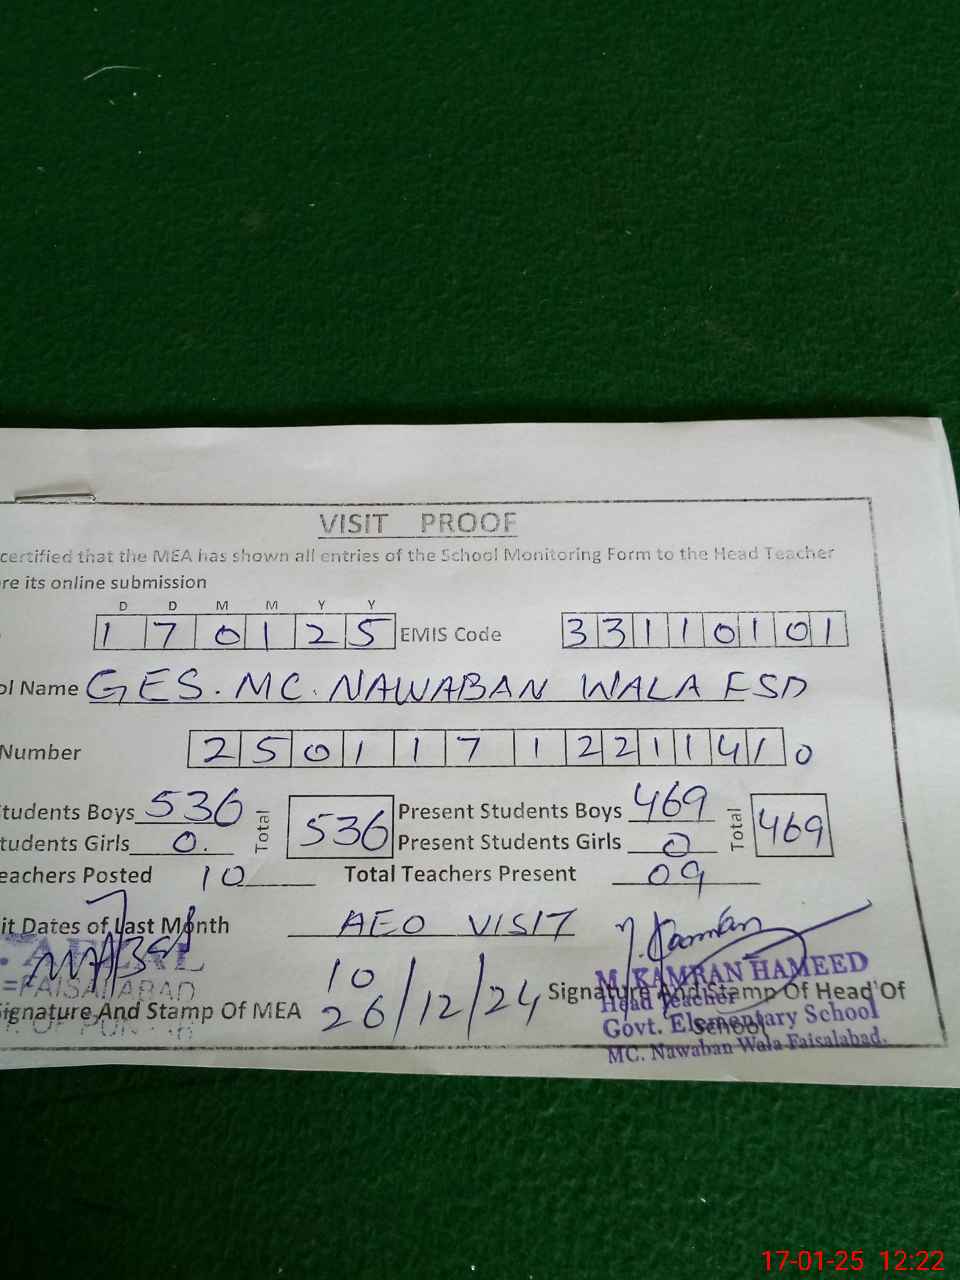 VISIT PROOF
certified that the MEA has shown all entries of the School Monitoring Form to the Head Teacher
re its online submission
D D M M Y Y
1 7 0 1 2 5 EMIS Code 3 3 1 1 0 1 0 1
ol Name GES. MC. NAWABAN WALA FSD
Number 2 5 0 1 1 7 1 2 2 1 1 4 1 0
tudents Boys 536 Total 536 Present Students Boys 469 Total 469
tudents Girls 0. Present Students Girls 0
eachers Posted 10 Total Teachers Present 09
it Dates of Last Month AEO VISIT
10
26/12/24
=FAISALABAD
ignature And Stamp Of MEA
Signature And Stamp Of Head Of
School
M. KAMRAN HAMEED
Head Teacher
Govt. Elementary School
MC. Nawaban Wala Faisalabad.
17-01-25 12:22